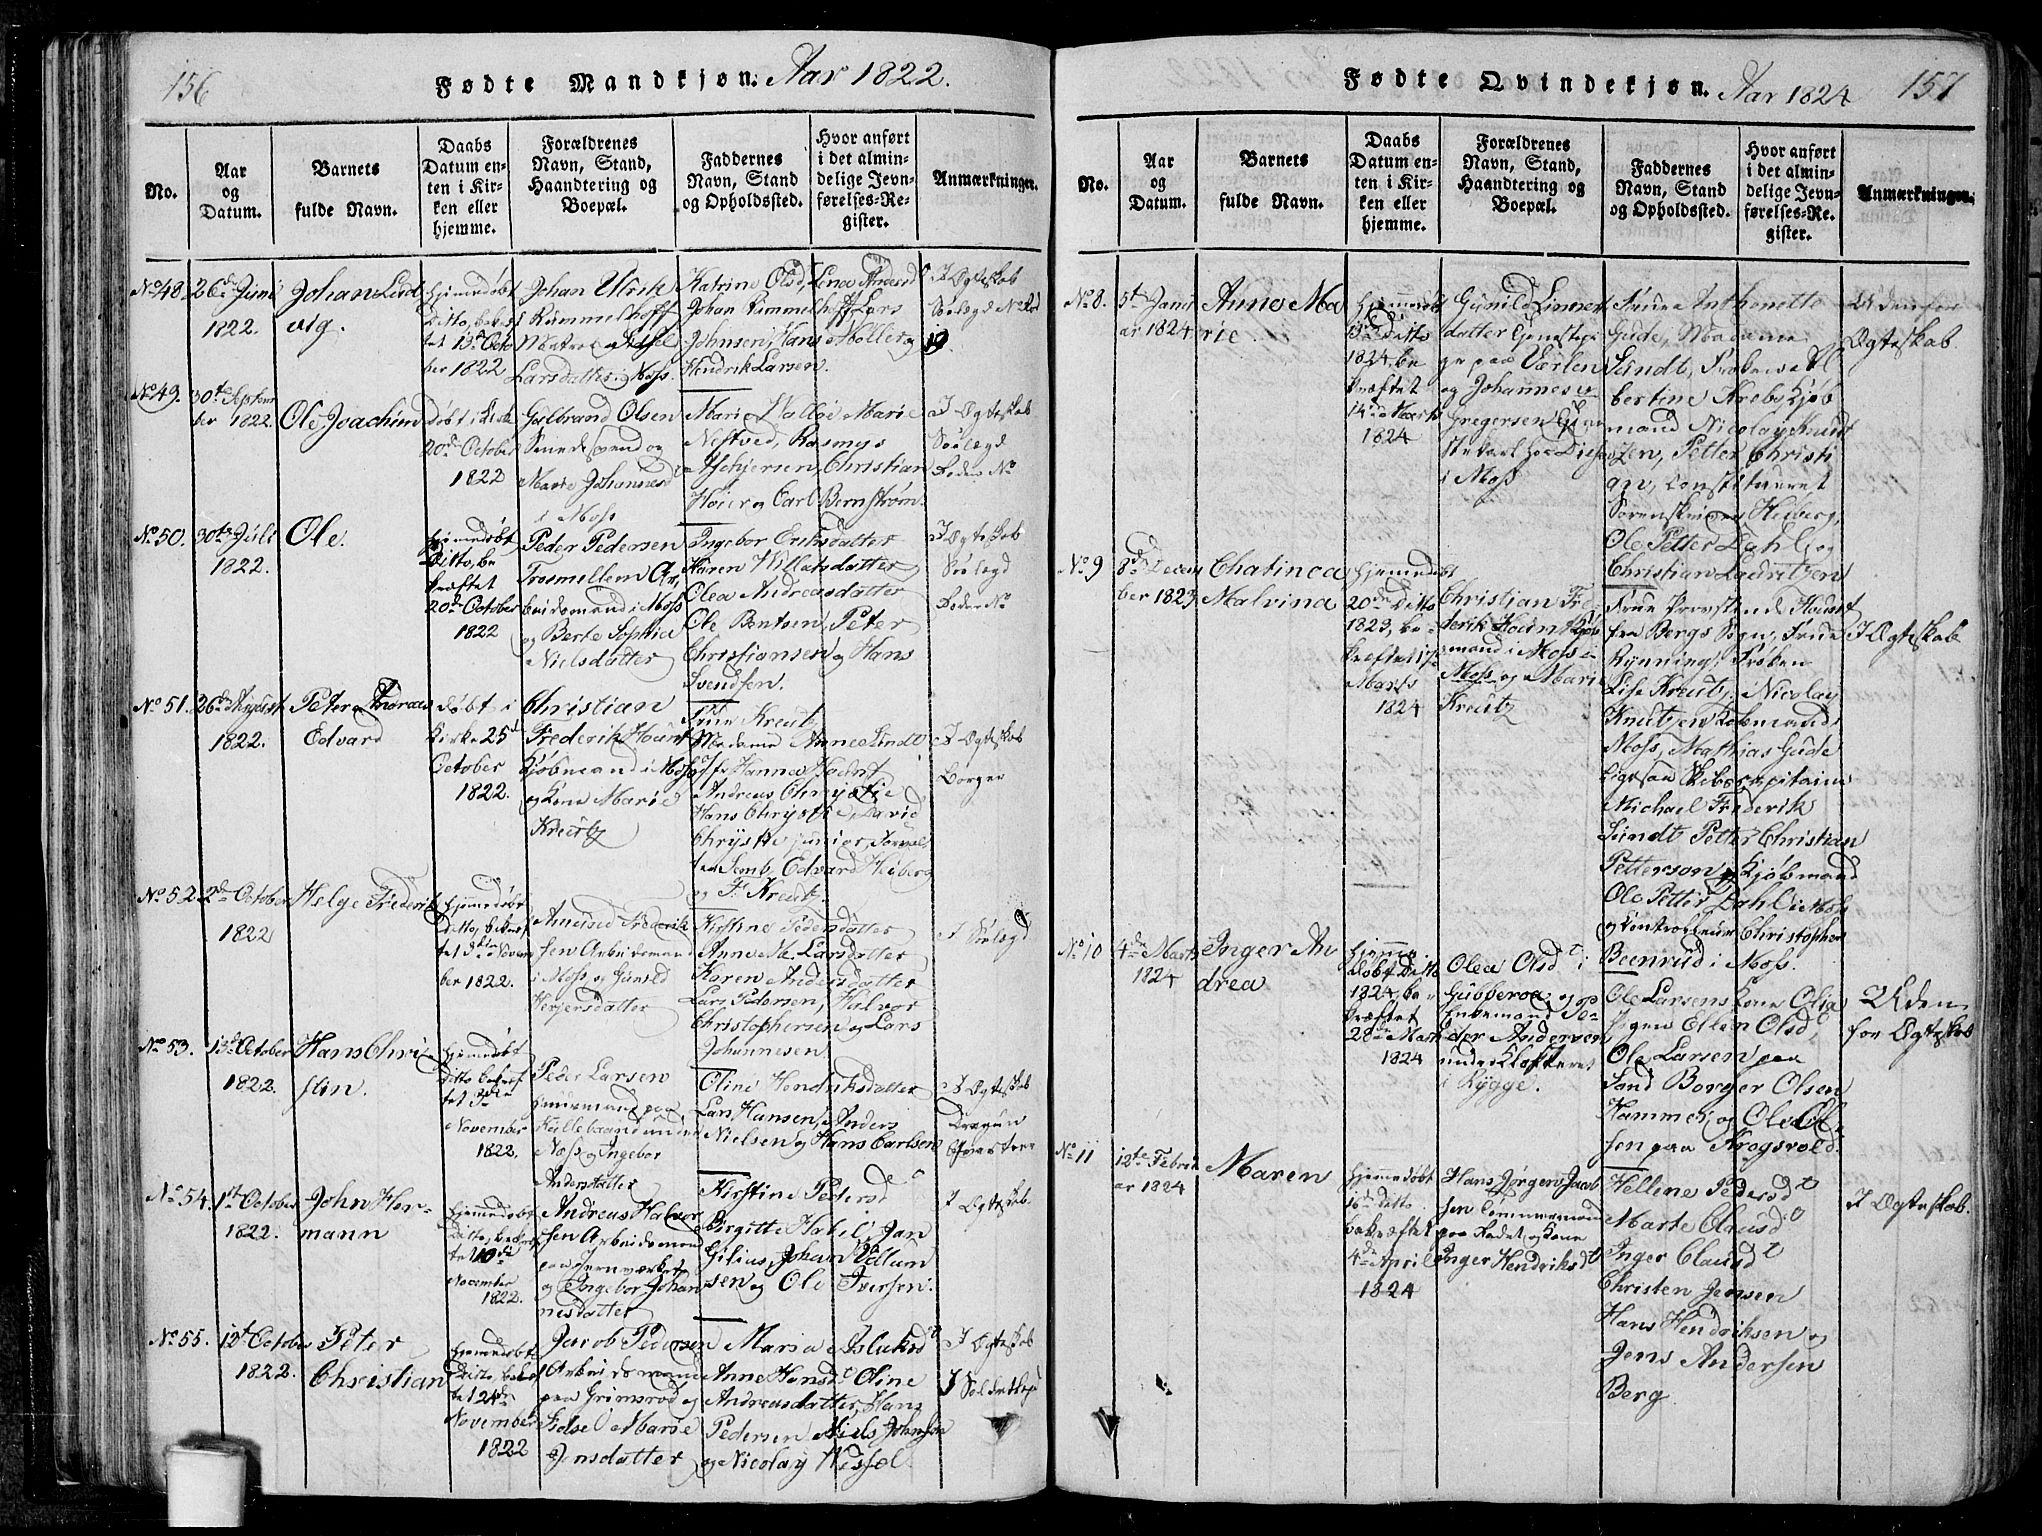 156
Fødte Mandkjøn. Aar 1822.
No.
Aar
og
Datum.
Barnets
fulde Navn.
Daabs
Datum en-
ten i Kir-
ken eller
hjemme.
Forældrenes
Navn, Stand,
Haandtering og
Boepæl.
Faddernes
Navn, Stand
og Opholdssted.
Hvor anført
i det almin-
delige Jevn-
førelses-Re-
gister.
Anmærkninger.
No 48.
26de Juni
1822.
Johan Lud
vig.
hjemmedøbt
Ditto, bekræf
tet 13de Octo
ber 1822
Johan Ulrik
Rummelhoff
Matros og Sidsel
Larsdatter i Moss.
Katrine Olsd, Lena Andersd
Johan Rummelhoff, Lars
Johnsen, Hans Møller og
Hendrik Larsen.
I Ægteskab
Søelægd No
19.
No 49.
30te Septem
ber 1822.
Ole Joachim
døbt i Kirke
20de October
1822
Gulbrand Olsen
Svendesvend og
Marie Johannesd
i Moss
Marie Walløe Marie
Nestved, Rasmus
Christian
Høier og Carl Bernstrøm.
I Ægteskab
Søelægd
Leder No
No 50.
30te Juli
1822.
Ole.
hjemmedøbt
Ditto, be
kræftet
20de October
1822
Peder Pedersen
Trosmellem Ar,
beidsmand i Moss
og Berte Sophia
Nielsdatter
Ingebor Eriksdatter
Karen Willatsdatter
Olea Andreasdatter
Ole Bentsen, Peter
Christiansen og Hans
Svendsen.
I Ægteskab
Søelægd
Leder No
No 51.
26de August
1822.
Peter Andreas
Edvard
døbt i
Kirke 25de
October
1822.
Christian
Frederik Hount
Kjøbmand i Moss
og Kone Marie
Kreutz
Frue Kreutz
Madame Anne Sundt
Jfr Hanna Hount
Andreas Chrystie
Hans Chrystie, David
Chrystie junior,
Semb, Edvard Heiberg
og F. Kreutz.
I Ægteskab
Borger
No 52.
2de October
1822
Helge Frederik
hjemmedøbt
Ditto, bekræf
tet 3die Novem
ber 1822.
Amund Frederik
sen Arbeidsmand
i Moss og Gunild
Kirstine Pedersdatter
Anne M. Larsdatter
Karen Andersdatter
Lars Pedersen, Halvor
Christophersen og Lars
Johannesen
I Søelægd
No 53.
13de October
1822.
Hans Chri
stin.
hjemmedøbt
Ditto bekræf
tet 3die
November
1822.
Peder Larsen
paa
Kallebraend under
Moss og Ingebor
Andersdatter
Oline Hendriksdatter
Lars Hansen, Anders
Nielsen og Hans Carlsen
I Ægteskab
Dragun
Qvarteer
No 54.
1st October
1822.
John Her-
mann
hjemmedøbt
Ditto, bekræf
tet 10de
November
1822.
Andreas Halvor
sen Arbeidsmand
paa Jernværket
og Ingebor Johan
nesdatter
Kirstine Pedersd
Birgitte Habel, Jan
Gilius, Johan Willum
sen og Ole Iversen.
I Ægteskab.
No 55.
12t October
1822.
Peter
Christian
hjemmedøbt
Ditto, bekræf
te 24de
November
1822
Jacob Pedersen
Arbeidsmand
paa Grimsrød og
Else Marie
Jensdatter
Maria Aslaksd
Anne Hansd Oline
Andreasdatter, Hans
Pedersen Niels Johnsen
og Nicolay Wissel.
I Ægteskab
I Soldatlægd
Fødte Qvindekjøn. Aar 1824
157
No.
Aar
og
Datum.
Barnets
fulde Navn.
Daabs
Datum en-
ten i Kir-
ken eller
hjemme.
Forældrenes
Navn, Stand,
Haandtering og
Boepæl.
Faddernes
Navn, Stand
og Opholdssted.
Hvor anført
i det almin-
delige Jevn-
førelses-Re-
gister.
Anmærkninger.
No 8.
5t Janu
ar 1824
Anne Ma
rie.
hjemmedøbt
13de Ditto
1824, be
kræftet
14de Marts
1824
Gunild Einers
datter Tjenestepi
ge paa Værlen
og Johannes
Gregersen
i Moss
Frue Anthonette
Gude, Madame
Sundt, Frøken Al
bertine Krebs Kjøb
mand Nicolay Knud
tzen, Petter Christi
an, Constitueret
Sorenskriver Heiberg,
Ole Petter Dahl og
Christian Lauritzen
Udenfor
Ægteskab
No 9
8de Decem
ber 1823
Chatinca
Malvina
hjemmedøbt
20de Ditto
1823, be-
kræftet 17de
Marts
1824
Christian Fre
derik Hount Kjøb
mand i Moss i
Moss og Marie
Kreutz
Frue Provstinde Hount
fra Bergs Sogn, Frue
Rynning, Frøken
Lise Kreutz, Nicolay
Knutzen Kjøbmand i
Moss, Mathias Gude
ligesaa Skibscapitain
Michael Frederik
Sundt Petter Christian
Petterson, Kjøbmand
Ole Petter Dahl i Moss
og Controlleur Christopher
Beenrud i Moss.
I Ægteskab
No 10
4de Marts
1824
Inger An
drea
hjemme
døbt Ditto
1824, be-
kræftet
28de Marts
1824
Olea Olsd i
Gubberoa og
Enkemand Pe-
der Andersen
under Klosteret
i Rygge.
Ole Larsens Kone Olia
Pigen Ellen Olsd,
Ole Larsen paa
Sand Borger Olsen
Hammer, og Ole Ol-
sen paa Krogsvold.
Uden
for Ægteskab
No 11
12te Febru
ar 1824
Maren
hjemmedøbt
16de ditto
bekræftet
4de April
1824
Hans Jørgen Jacob
sen Tømmermand
og Kone
Inger Hendriksd
Hellene Pedersd
Marte Clausd
Inger Clausd
Christen Jensen
Hans Hendriksen og
Jens Andersen
Berg
I Ægteskab.